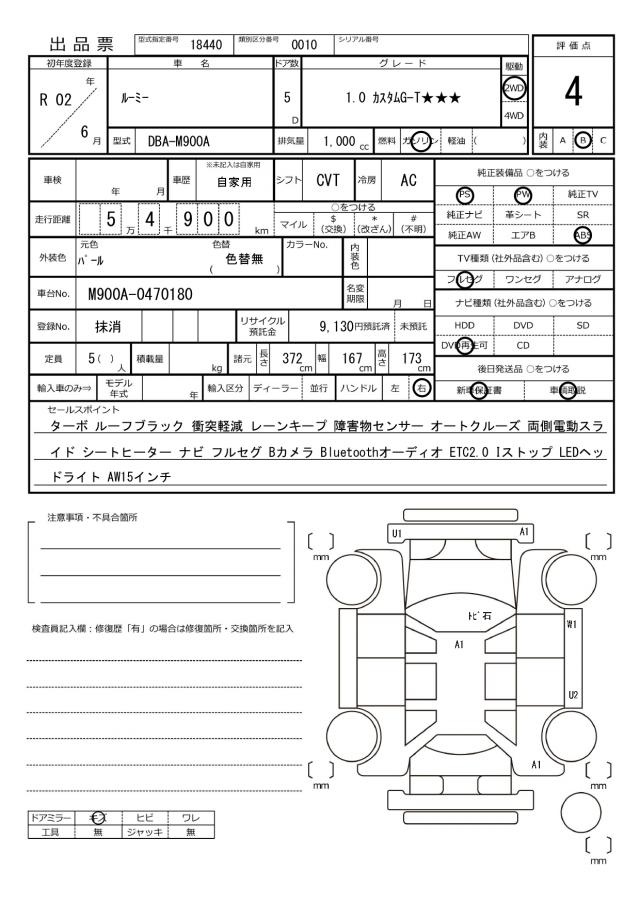 出品票 型式指定番号 18440 類別区分番号 0010 シリアル番号
評価点
4
初年度登録 車名 ドア数 グレード 駆動
R 02 年 6 月
ルーミー 5 D 1.0 カスタムG-T★★★ 2WD
4WD
型式 DBA-M900A 排気量 1,000 cc 燃料 ガソリン 軽油 ( )
内装 A B C
車検 年 月 車歴 ※未記入は自家用 自家用 シフト CVT 冷房 AC
純正装備品 ○をつける
PS PW 純正TV
純正ナビ 革シート SR
純正AW エアB ABS
走行距離 5 万 4 千 9 0 0 km
○をつける
マイル $ (交換) * (改ざん) # (不明)
外装色 元色 パール 色替 ( 色替無 ) カラーNo. 内装色
TV種類 (社外品含む) ○をつける
フルセグ ワンセグ アナログ
車台No. M900A-0470180 名変期限 月 日
ナビ種類 (社外品含む) ○をつける
HDD DVD SD
DVD再生可 CD
登録No. 抹消 リサイクル預託金 9,130円預託済 未預託
定員 5( ) 人 積載量 kg 諸元 長さ 372 cm 幅 167 cm 高さ 173 cm
後日発送品 ○をつける
新車保証書 車輌取説
輸入車のみ⇒ モデル年式 年 輸入区分 ディーラー 並行 ハンドル 左 右
セールスポイント
ターボ ルーフブラック 衝突軽減 レーンキープ 障害物センサー オートクルーズ 両側電動スラ
イド シートヒーター ナビ フルセグ Bカメラ Bluetoothオーディオ ETC2.0 Iストップ LEDヘッ
ドライト AW15インチ
注意事項・不具合箇所
検査員記入欄：修復歴「有」の場合は修復箇所・交換箇所を記入
U1 A1
mm mm
トビ石
A1
W1
U2
A1
mm mm
mm
ドアミラー キズ ヒビ ワレ
工具 無 ジャッキ 無